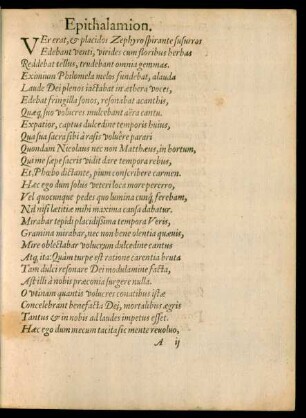 Epithalamion.
VEr erat, & placidos Zephyro spirante susurros
Edebant venti, virides cum floribus herbas
Reddebat tellus, trudebant omnia gemmas.
Eximium Philomela melos fundebat, alauda
Laude Dei plenos iactabat in æthera voces,
Edebat fringilla sonos, resonabat acanthis,
Quæq; suo volucres mulcebant aëra cantu.
Expatior, captus dulcedine temporis huius,
Qua sua sacra sibi à rasis voluêre parari
Quondam Nicolaus nec non Matthæus, in hortum,
Qui me sæpe sacris vidit dare tempora rebus,
Et, Phœbo dictante, pium conscribere carmen.
Hæc ego dum solus veteri loca more pererro,
Vel quocunque pedes quo lumina cunq; ferebam,
Nil nisi lætitiæ mihi maxima causa dabatur.
Mirabar tepidi placidissima tempora Veris,
Gramina mirabar, nec non bene olentia quænis,
Mire oblectabar volucrum dulcedine cantus
Atq; ita: Quàm turpe est ratione carentia bruta
Tam dulci resonare Dei modulamine facta,
Ast illi à nobis præconia surgere nulla.
O vtinam quantis volucres conatibus istæ
Concelebrant benefacta Dei, mortalibus ægris
Tantus & in nobis ad laudes impetus esset.
Hæc ego dum mecum tacita sic mente reuoluo,
A ij